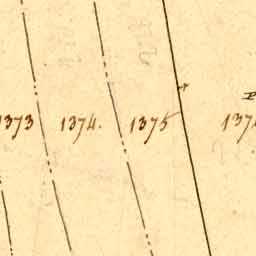 1373 1374. 1375